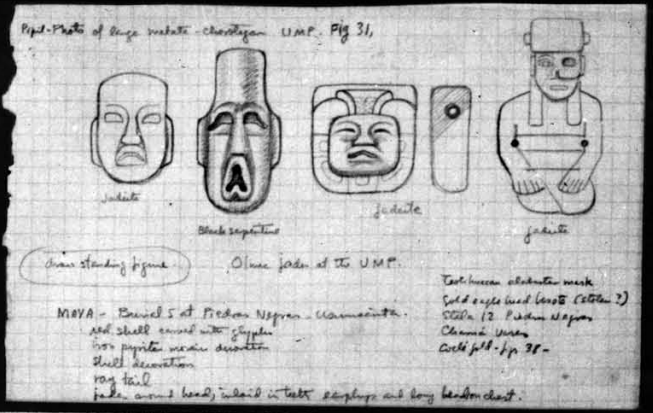 Pipil - Photo of large metate - chorotegan UMP. Fig 31,
jadeite
Black serpentine
jadeite
jadeite
draw standing figure
Olmec jades at the UMP.
Teotihuacan alabaster mask
Gold eagle head (stolen ?)
Stela 12 Piedras Negras
Chamá Vases
Coclé gold - pp 38 -
MAYA - Burial 5 at Piedras Negras - Usumacinta.
red shell carved with glyphs
iron pyrites mosaic decoration
shell decoration
ray tail
jades around head; inlaid in teeth earplugs and long bead on chest.